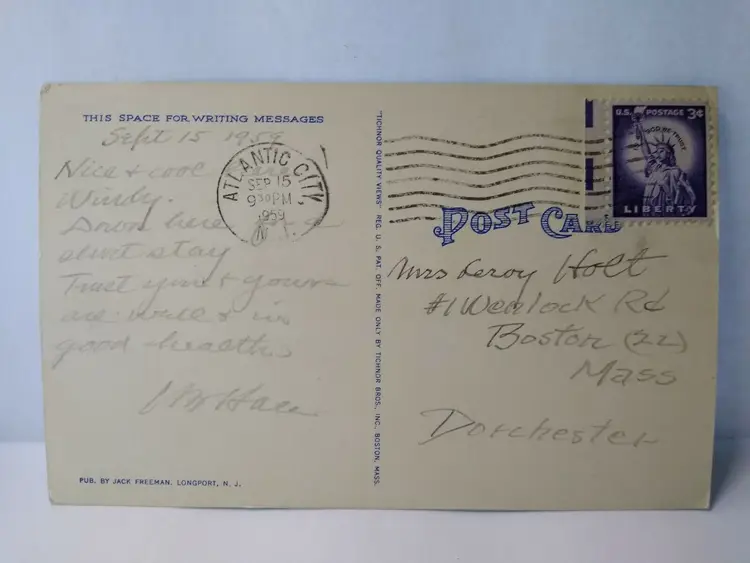 THIS SPACE FOR WRITING MESSAGES
Sept 15 1959
Nice & cool
Windy.
Down here a
short stay
Trust you & yours
are well & in
good health.
PUB. BY JACK FREEMAN, LONGPORT, N. J.
"TICHNOR QUALITY VIEWS" REG. U. S. PAT. OFF. MADE ONLY BY TICHNOR BROS., INC. BOSTON, MASS.
ATLANTIC CITY,
SEP 15
9 30 PM
1959
N. J.
U.S. POSTAGE 3¢
IN GOD WE TRUST
LIBERTY
POST CARD
Mrs Leroy Holt
#1 Wenlock Rd
Boston (22)
Mass
Dorchester